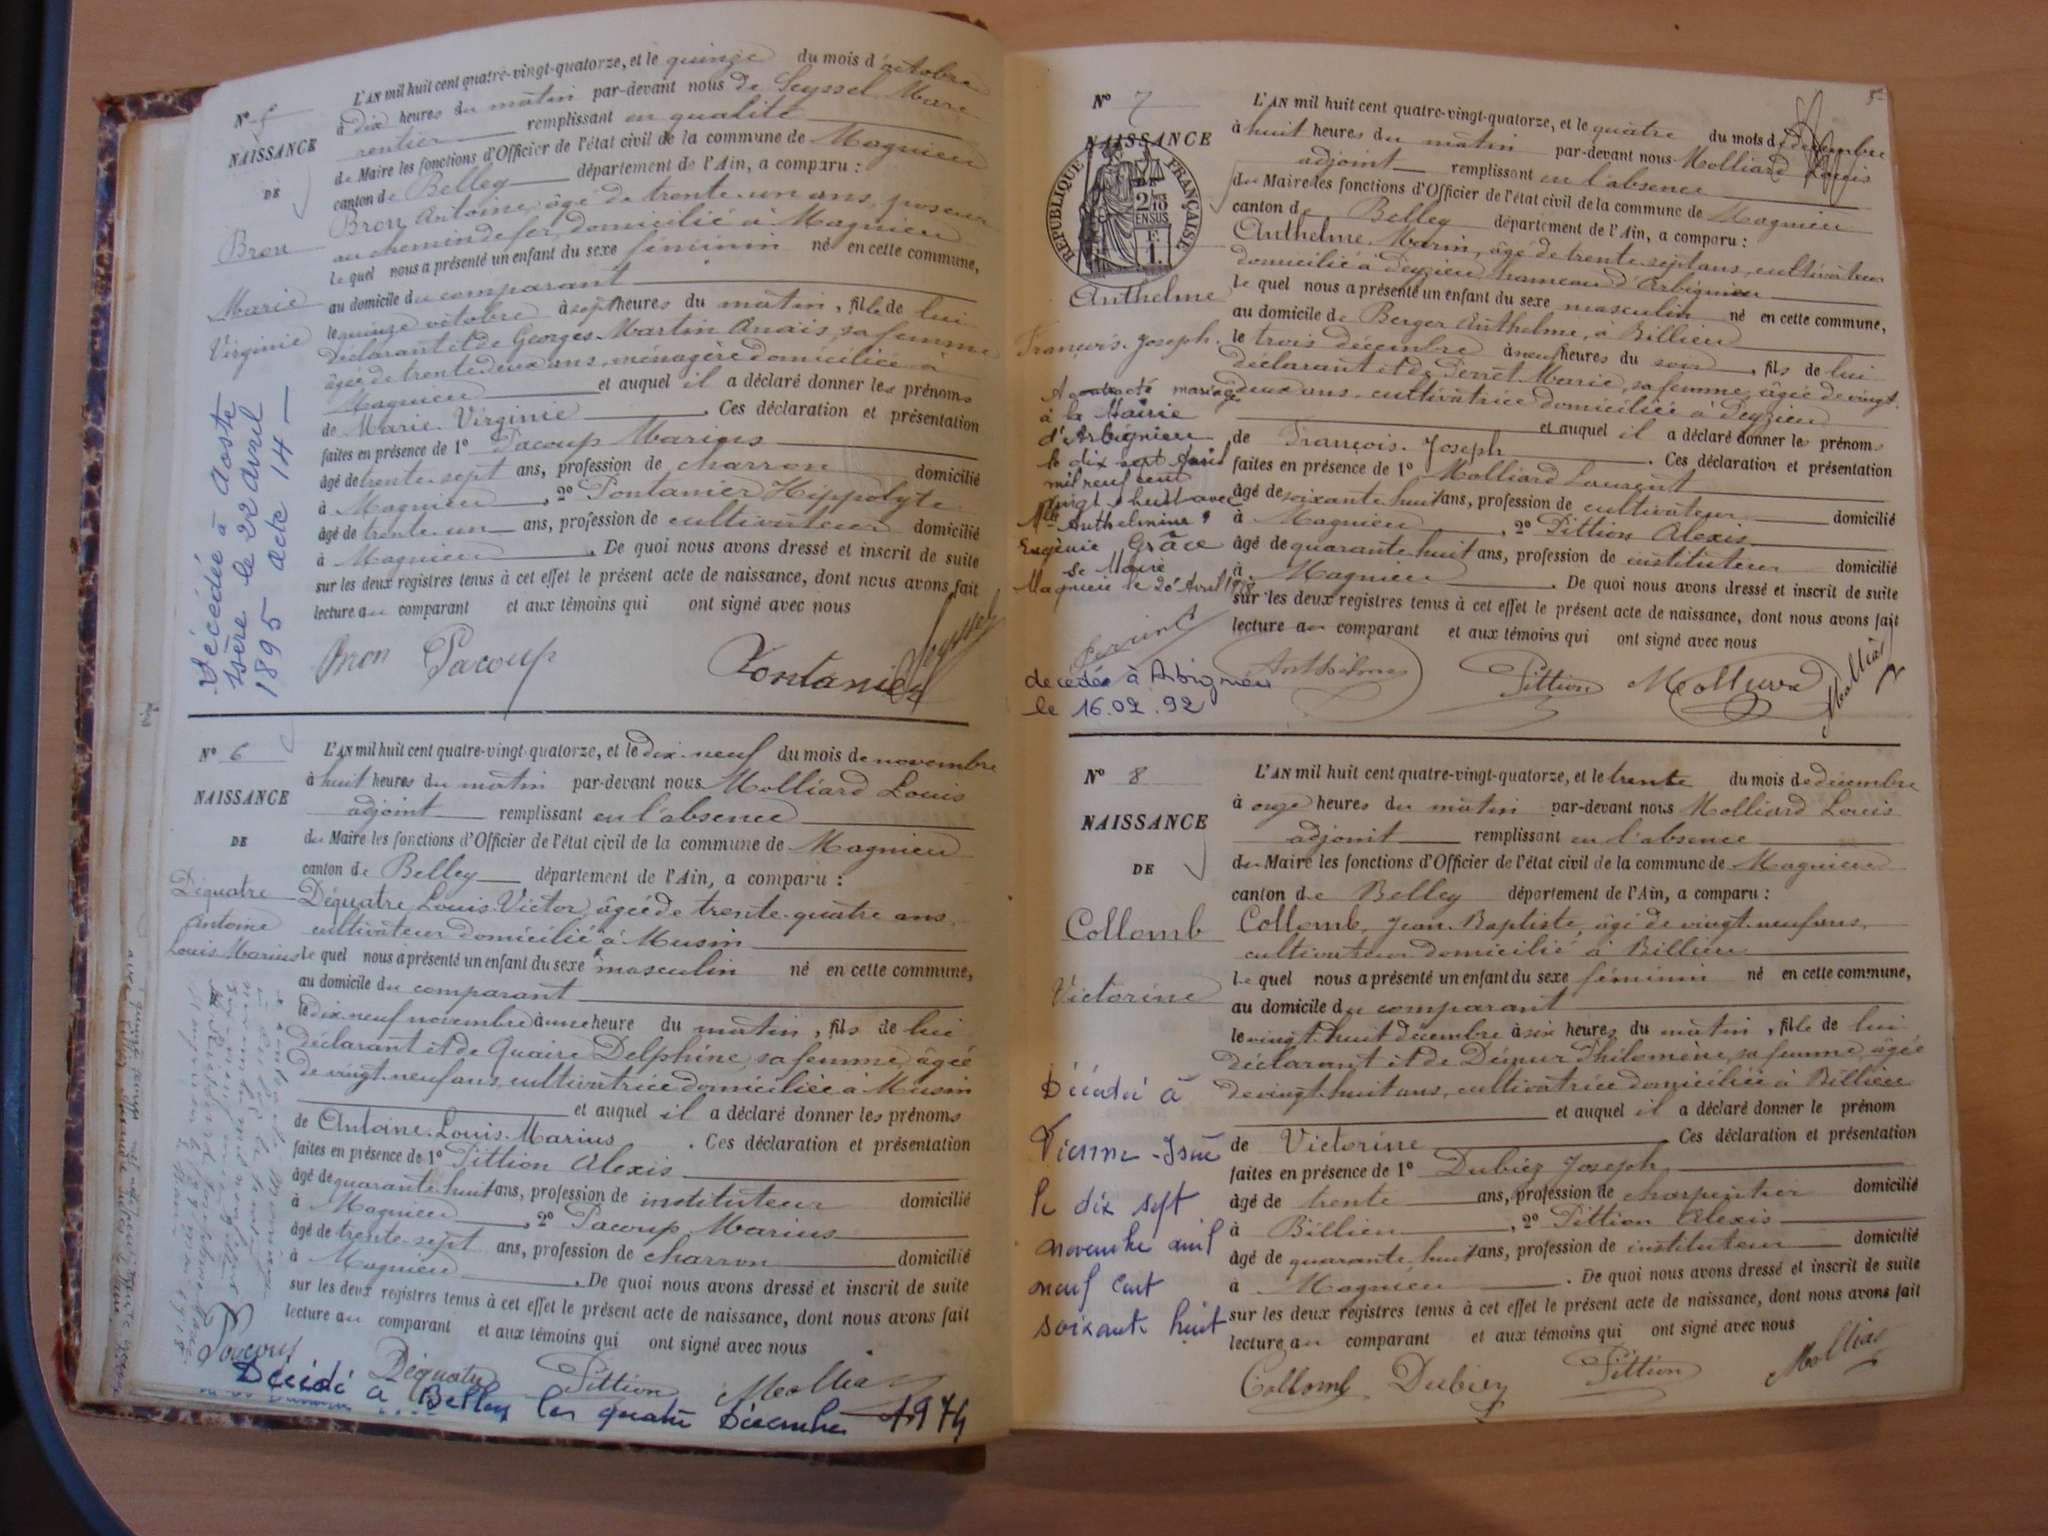 L'AN mil huit cent quatre-vingt-quatorze, et le quinze du mois d'octobre
à dix heures du matin par-devant nous de Seyssel Marc
rentier remplissant en qualité
de Maire les fonctions d'Officier de l'état civil de la commune de Magnieu
canton de Belley département de l'Ain, a comparu :
Bron Antoine, âgé de trente-un ans, poseur
au chemin de fer, domicilié à Magnieu
lequel nous a présenté un enfant du sexe féminin né en cette commune,
au domicile du comparant
le quinze octobre à sept heures du matin, fille de lui
déclarant et de Georges Martin Anaïs, sa femme
âgée de trente-deux ans, ménagère domiciliée à
Magnieu et auquel il a déclaré donner les prénoms
de Marie Virginie . Ces déclaration et présentation
faites en présence de 1° Pacoup Marius
âgé de trente-sept ans, profession de charron domicilié
à Magnieu , 2° Fontanier Hippolyte
âgé de trente-un ans, profession de cultivateur domicilié
à Magnieu . De quoi nous avons dressé et inscrit de suite
sur les deux registres tenus à cet effet le présent acte de naissance, dont nous avons fait
lecture au comparant et aux témoins qui ont signé avec nous
Bron Pacoup Fontanier Seyssel
N° 5
NAISSANCE
DE
Bron
Marie
Virginie
Décédée à Aoste
Isère le 22 avril
1895 acte 14
N° 6
NAISSANCE
DE
Déquatre
Antoine
Louis Marius
L'AN mil huit cent quatre-vingt-quatorze, et le dix-neuf du mois de novembre
à huit heures du matin par-devant nous Molliard Louis
adjoint remplissant en l'absence
du Maire les fonctions d'Officier de l'état civil de la commune de Magnieu
canton de Belley département de l'Ain, a comparu :
Déquatre Louis Victor, âgé de trente-quatre ans
cultivateur domicilié à Musin
lequel nous a présenté un enfant du sexe masculin né en cette commune,
au domicile du comparant
le dix-neuf novembre à une heure du matin, fils de lui
déclarant et de Guaire Delphine, sa femme, âgée
de vingt-neuf ans, cultivatrice domiciliée à Musin
et auquel il a déclaré donner les prénoms
de Antoine Louis Marius . Ces déclaration et présentation
faites en présence de 1° Pittion Alexis
âgé de quarante-huit ans, profession de instituteur domicilié
à Magnieu , 2° Pacoup Marius
âgé de trente-sept ans, profession de charron domicilié
à Magnieu . De quoi nous avons dressé et inscrit de suite
sur les deux registres tenus à cet effet le présent acte de naissance, dont nous avons fait
lecture au comparant et aux témoins qui ont signé avec nous
Pacoup Déquatre Pittion Molliard
Décédé à Belley le quatre Décembre 1974
N° 7
NAISSANCE
DE
RÉPUBLIQUE FRANÇAISE
2/10 EN SUS
F. 1.
Anthelme
François-Joseph
A contracté mariage
à la Mairie
d'Arbignieu
le dix sept Avril
mil neuf cent
vingt huit avec
Mlle Anthelmine
Eugénie Grâce
Le Maire
Magnieu le 20 Avril 1928
décédé à Arbignieu
le 16.02.92
L'AN mil huit cent quatre-vingt-quatorze, et le quatre du mois de décembre
à huit heures du matin par-devant nous Molliard Louis
adjoint remplissant en l'absence
du Maire les fonctions d'Officier de l'état civil de la commune de Magnieu
canton de Belley département de l'Ain, a comparu :
Anthelme Marin, âgé de trente-sept ans, cultivateur
domicilié à Peyzieu hameau d'Arbignieu
lequel nous a présenté un enfant du sexe masculin né en cette commune,
au domicile de Berger Anthelme, à Billieu
le trois décembre à neuf heures du soir, fils de lui
déclarant et de Perret Marie, sa femme, âgée de vingt-
deux ans, cultivatrice domiciliée à Peyzieu
et auquel il a déclaré donner les prénoms
de François-Joseph . Ces déclaration et présentation
faites en présence de 1° Molliard Laurent
âgé de soixante-huit ans, profession de cultivateur domicilié
à Magnieu , 2° Pittion Alexis
âgé de quarante-huit ans, profession de instituteur domicilié
à Magnieu . De quoi nous avons dressé et inscrit de suite
sur les deux registres tenus à cet effet le présent acte de naissance, dont nous avons fait
lecture au comparant et aux témoins qui ont signé avec nous
Anthelme Pittion Molliard Molliard
N° 8
NAISSANCE
DE
Collomb
Victorine
Décédée à
Vienne - Isère
le dix sept
novembre mil
neuf cent
soixante huit
L'AN mil huit cent quatre-vingt-quatorze, et le trente du mois de décembre
à onze heures du matin par-devant nous Molliard Louis
adjoint remplissant en l'absence
du Maire les fonctions d'Officier de l'état civil de la commune de Magnieu
canton de Belley département de l'Ain, a comparu :
Collomb, Jean-Baptiste, âgé de vingt-neuf ans,
cultivateur domicilié à Billieu
lequel nous a présenté un enfant du sexe féminin né en cette commune,
au domicile du comparant
le vingt-huit décembre à six heures du matin, fille de lui
déclarant et de Démur Philomène, sa femme, âgée
de vingt-huit ans, cultivatrice domiciliée à Billieu
et auquel il a déclaré donner le prénom
de Victorine . Ces déclaration et présentation
faites en présence de 1° Dubiez Joseph
âgé de trente ans, profession de charpentier domicilié
à Billieu , 2° Pittion Alexis
âgé de quarante-huit ans, profession de instituteur domicilié
à Magnieu . De quoi nous avons dressé et inscrit de suite
sur les deux registres tenus à cet effet le présent acte de naissance, dont nous avons fait
lecture au comparant et aux témoins qui ont signé avec nous
Collomb Dubiez Pittion Molliard